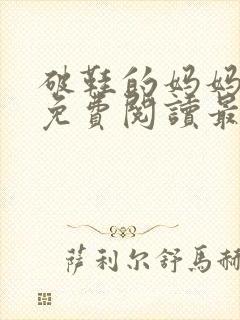 破鞋的妈妈
免費閱讀最
萨利尔舒馬赫